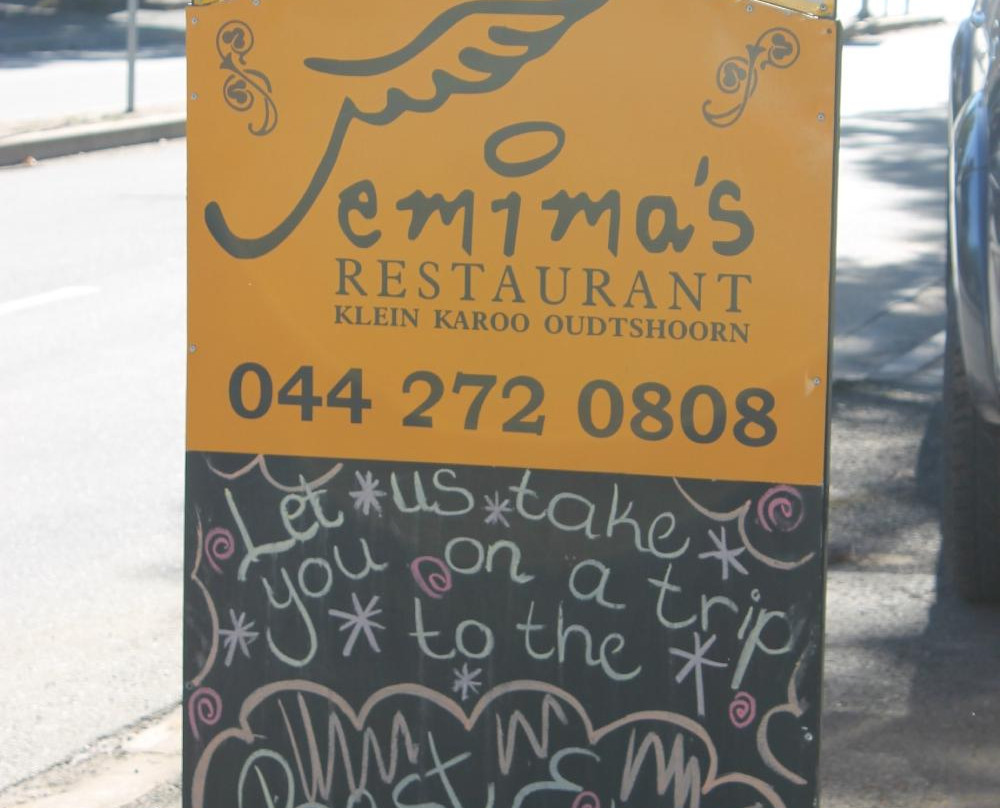 Jemima's
RESTAURANT
KLEIN KAROO OUDTSHOORN
044 272 0808
Let us take
you on a trip
to the